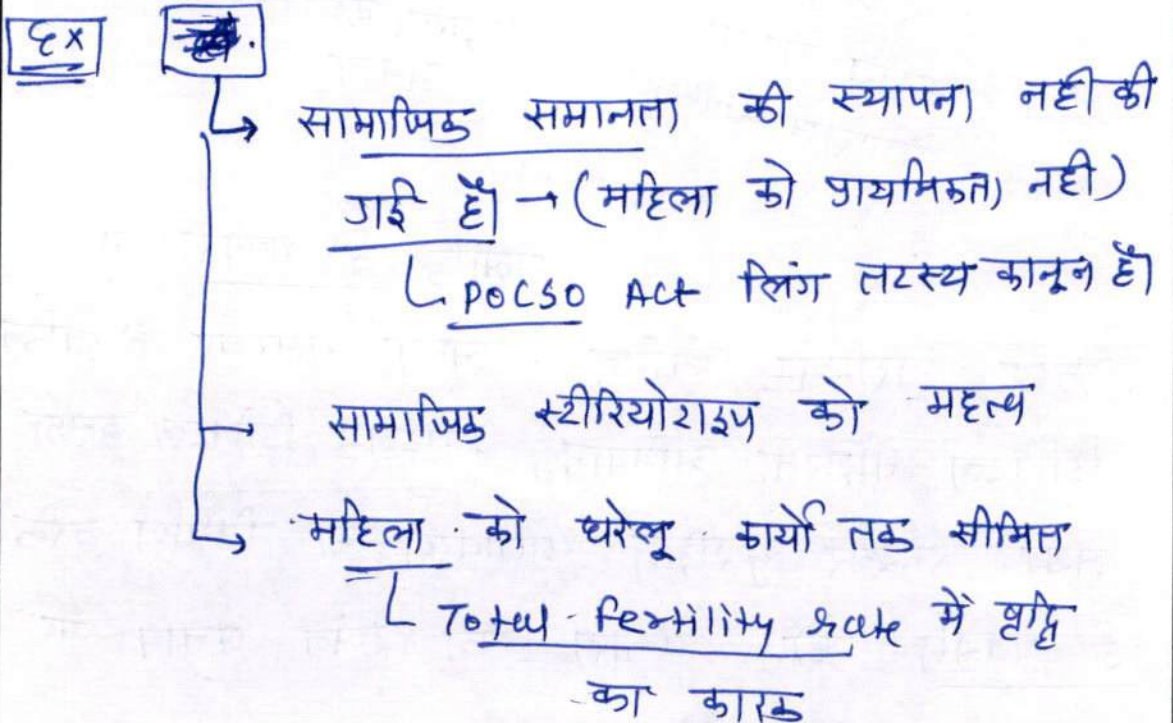 Ex
सामाजिक समानता की स्थापना नही की
गई है। → (महिला को प्राथमिकता नही)
POCSO Act लिंग तटस्थ कानून है।
सामाजिक स्टीरियोटाइप को महत्व
महिला को घरेलू कार्यो तक सीमित
Total fertility rate में वृद्धि
का कारक